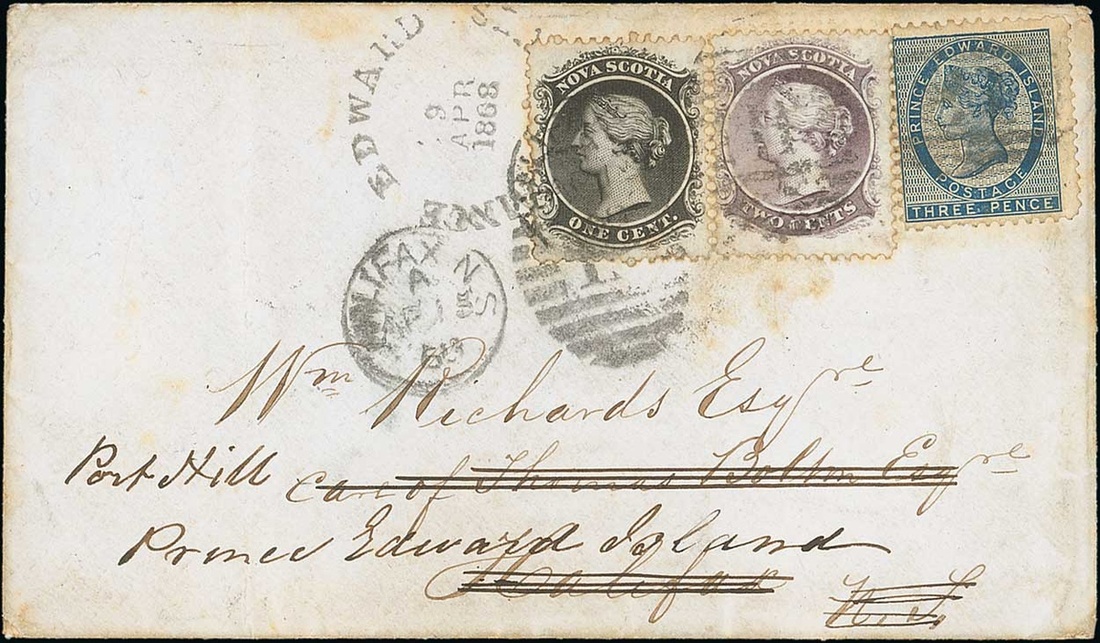 EDWARD
9
APR
1868
NOVA SCOTIA
ONE CENT.
NOVA SCOTIA
TWO CENTS
PRINCE EDWARD ISLAND
POSTAGE
THREE PENCE
HALIFAX N.S
Wm Richards Esqre
Port Hill care of Thomas Bolton Esqre
Prince Edward Island
Halifax N.S